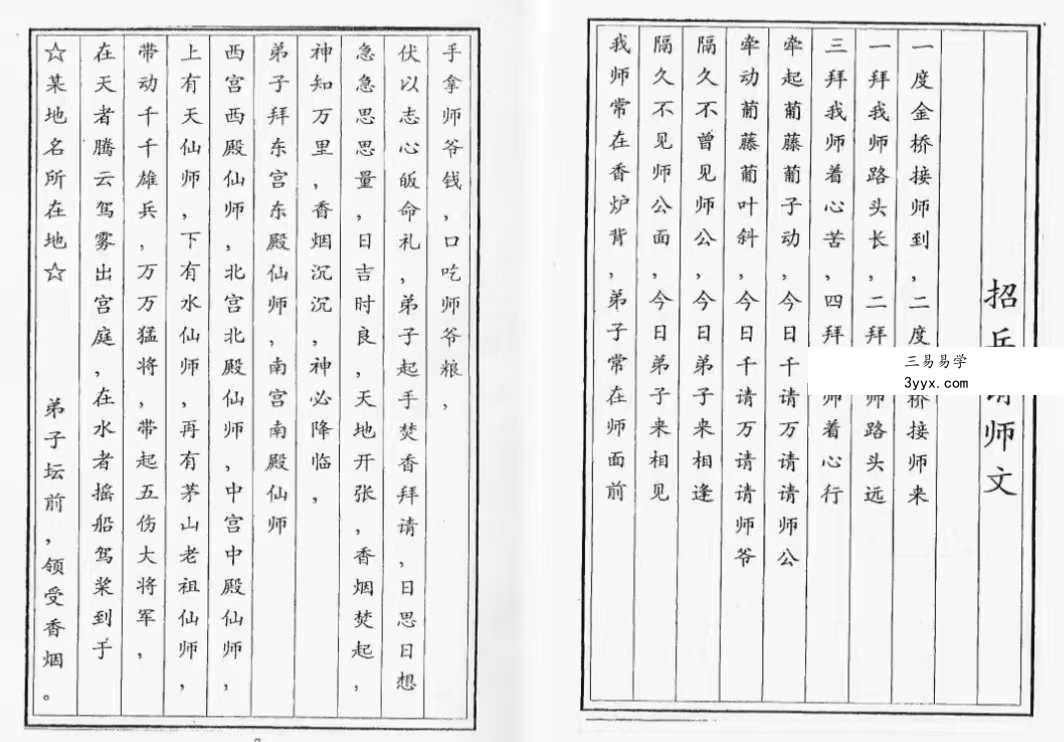 招兵请师文
一度金桥接师到，二度桥接师来
一拜我师路头长，二拜师路头远
三拜我师着心苦，四拜师着心行
牵起葡藤葡子动，今日千请万请请师公
牵动葡藤葡叶斜，今日千请万请请师爷
隔久不曾见师公，今日弟子来相逢
隔久不见师公面，今日弟子来相见
我师常在香炉背，弟子常在师面前
手拿师爷钱，口吃师爷粮，
伏以志心皈命礼，弟子起手焚香拜请，日思日想
急急思思量，日吉时良，天地开张，香烟焚起，
神知万里，香烟沉沉，神必降临，
弟子拜东宫东殿仙师，南宫南殿仙师
西宫西殿仙师，北宫北殿仙师，中宫中殿仙师，
上有天仙师，下有水仙师，再有茅山老祖仙师，
带动千千雄兵，万万猛将，带起五伤大将军，
在天者腾云驾雾出宫庭，在水者摇船驾桨到于
☆某地名所在地☆ 弟子坛前，领受香烟。
三易易学
3yyx.com